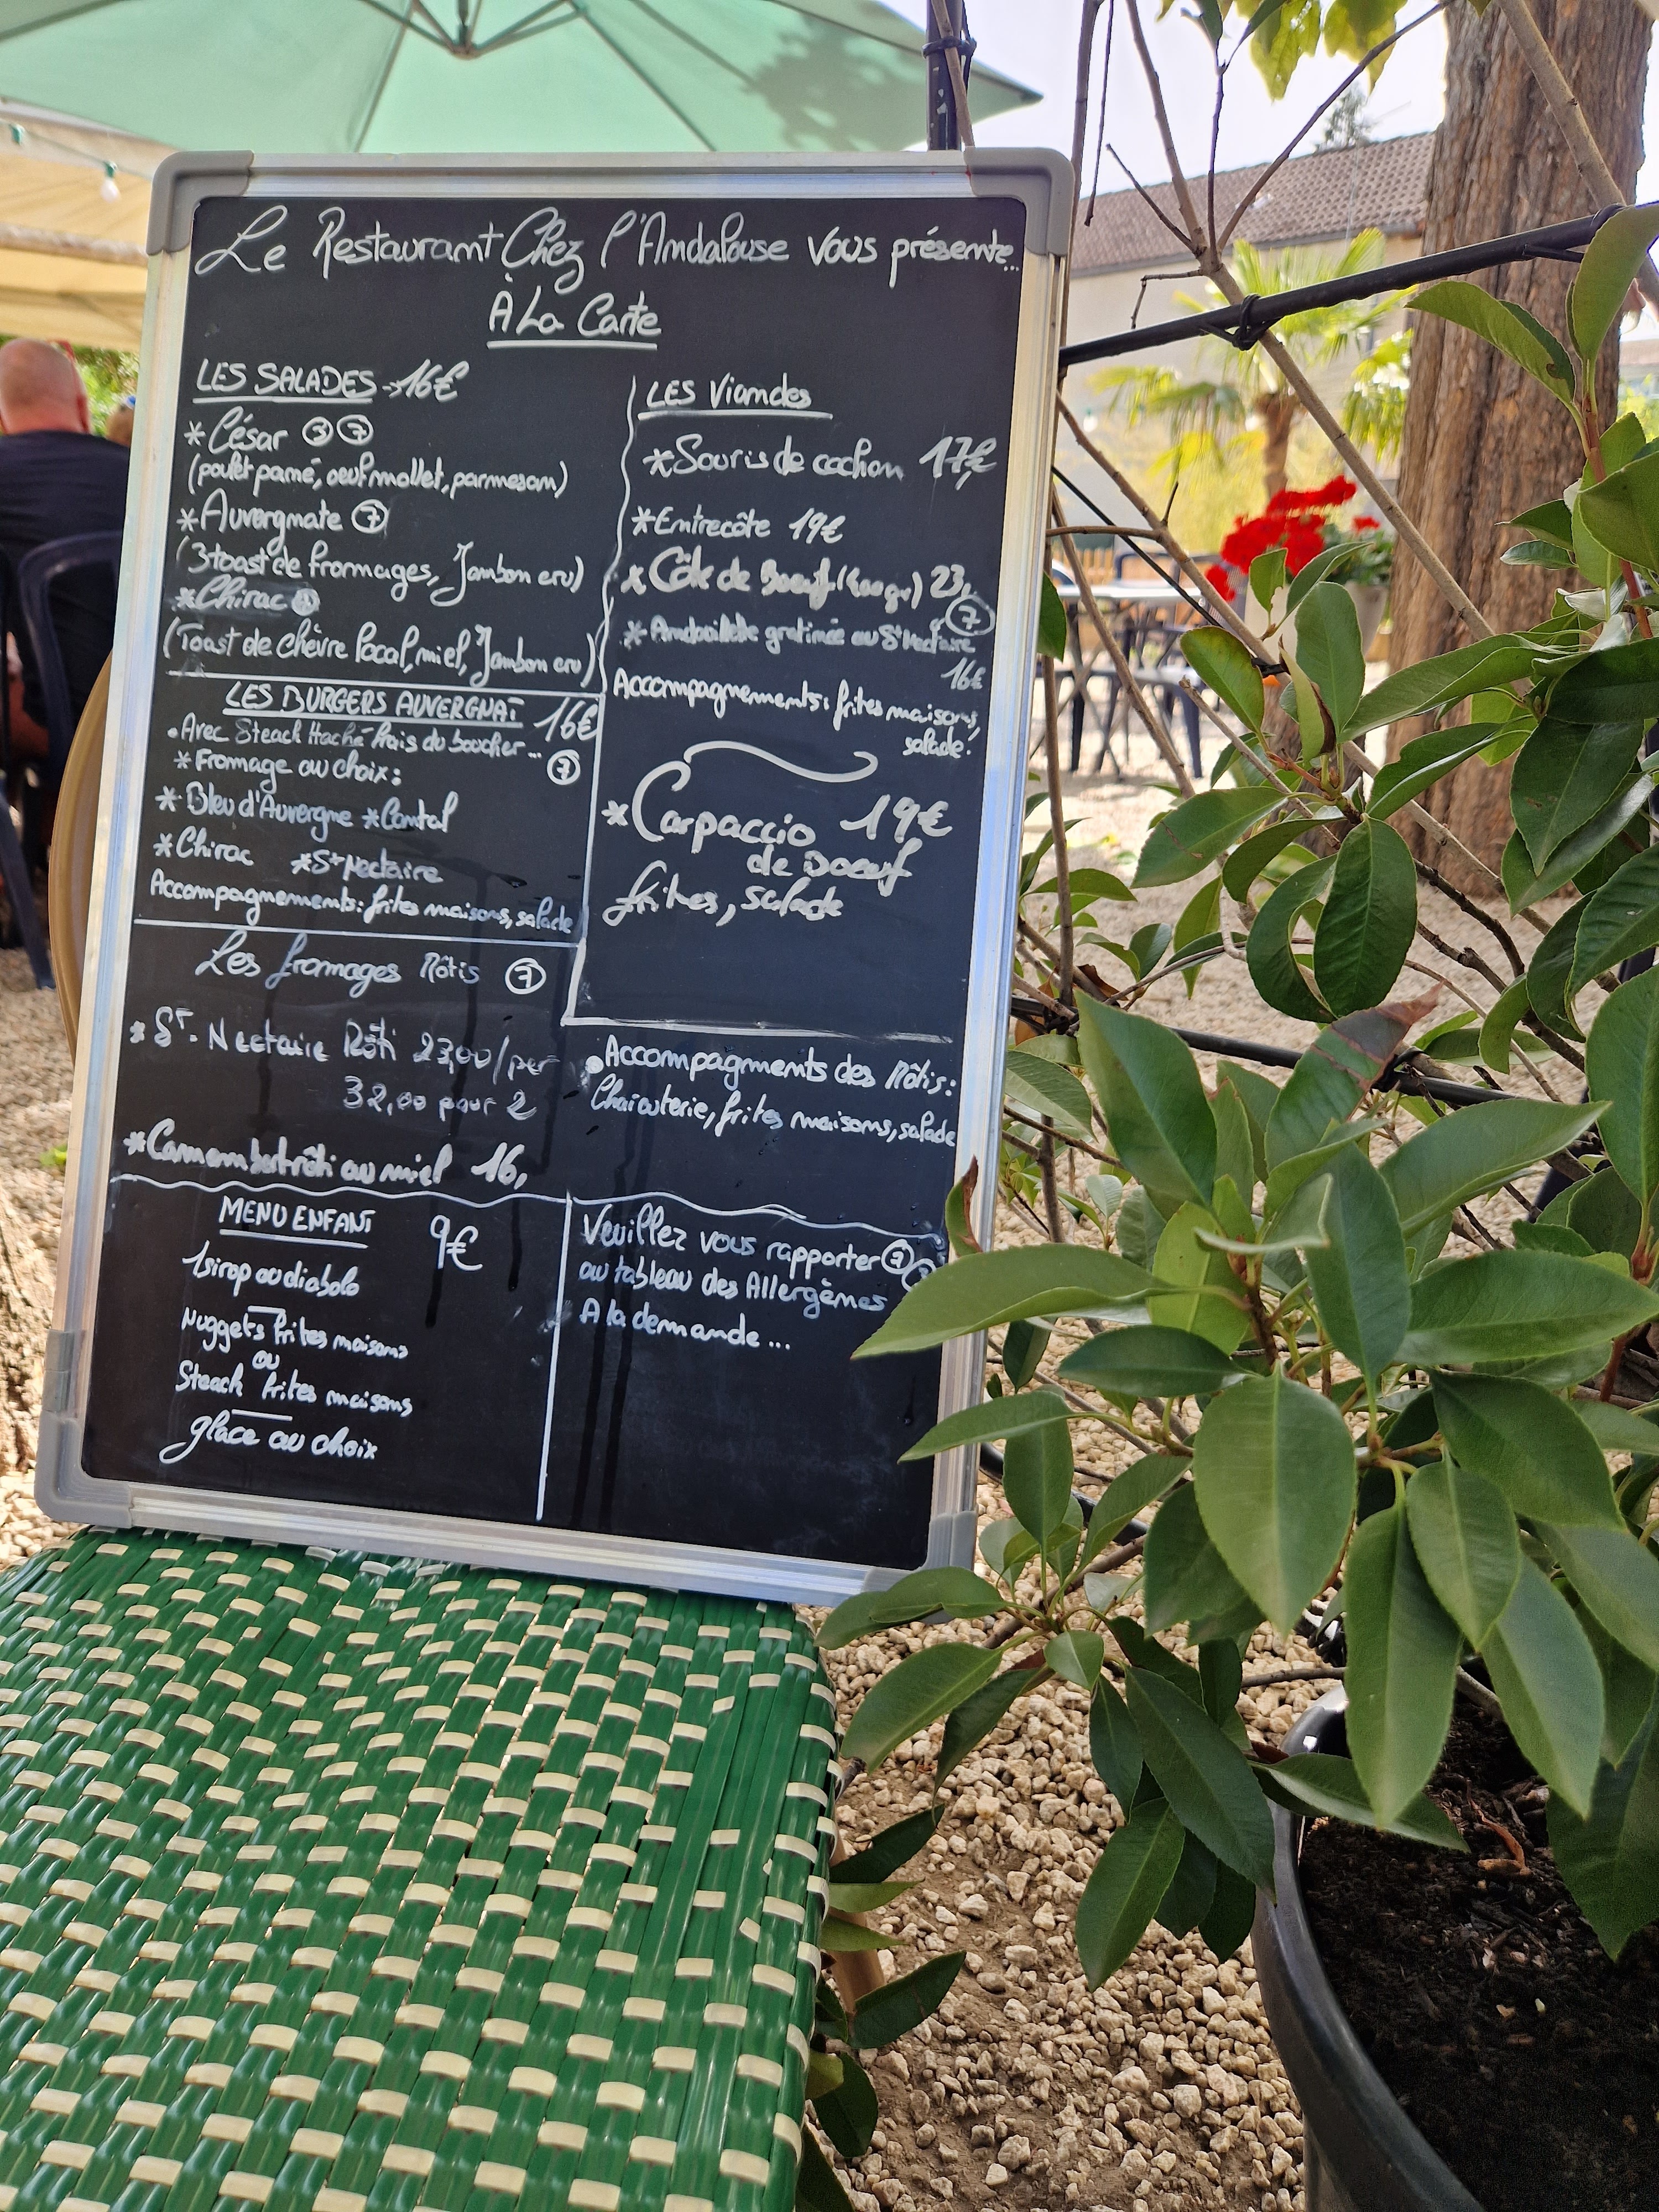 Le Restaurant Chez l'Andalouse vous présente...
À La Carte
LES SALADES → 16€
* César ③ ⑦
(poulet pané, oeuf mollet, parmesan)
* Auvergnate ⑦
(3 toast de fromages, Jambon cru)
* Chirac
(Toast de chèvre local, miel, Jambon cru)
LES BURGERS AUVERGNAT 16€
. Avec Steack Haché frais du boucher...
* Fromage au choix: ⑦
* Bleu d'Auvergne * Cantal
* Chirac * St Nectaire
Accompagnements: frites maisons, salade
LES Viandes
* Souris de cochon 17€
* Entrecôte 19€
* Côte de Boeuf (400gr) 23,
⑦
* Andouillette gratinée au St Nectaire
16€
Accompagnements: frites maisons,
salade.
* Carpaccio 19€
de Boeuf
frites, salade
Les fromages Rôtis ⑦
* St. Nectaire Rôti 23,00/per
32,00 pour 2
* Camembert rôti au miel 16,
• Accompagments des Rôtis:
Charcuterie, frites maisons, salade
MENU ENFANT 9€
1 sirop ou diabolo
Nuggets frites maisons
ou
Steack frites maisons
glace au choix
Veuillez vous rapporter ⑦
au tableau des Allergènes
A la demande...